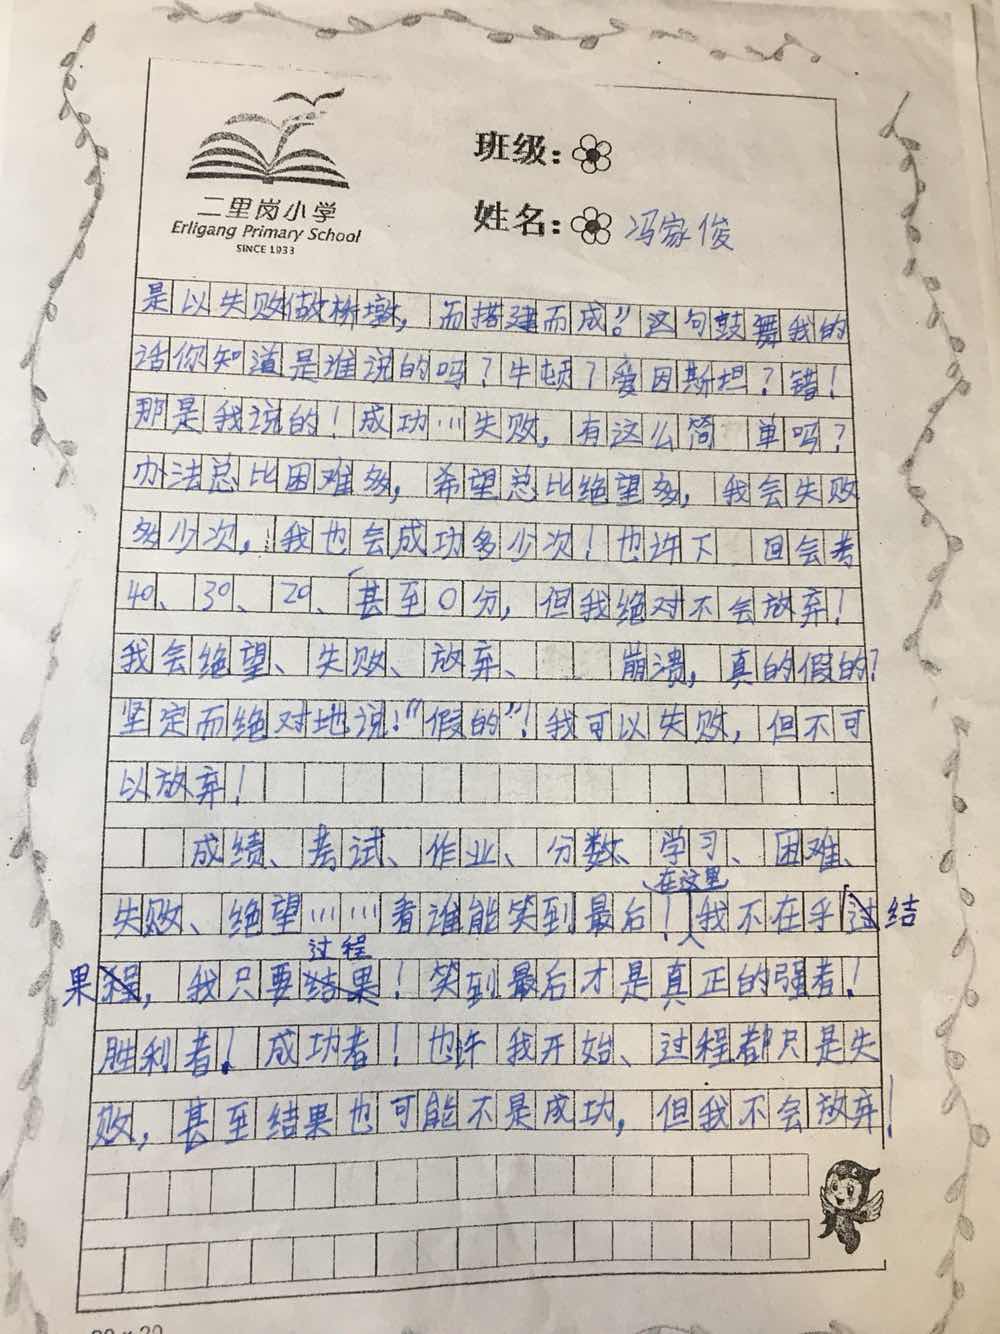 班级:
二里岗小学
Erligang Primary School
SINCE 1933
姓名: 冯家俊
是以失败做桥墩，而搭建而成”。这句鼓舞我的
话你知道是谁说的吗？牛顿？爱因斯坦？错！
那是我说的！成功……失败，有这么简单吗？
办法总比困难多，希望总比绝望多，我会失败
多少次，我也会成功多少次！也许下回会考
40、30、20、甚至0分，但我绝对不会放弃！
我会绝望、失败、放弃、崩溃，真的假的？
坚定而绝对地说！“假的”！我可以失败，但不可
以放弃！
成绩、考试、作业、分数、学习、困难、
失败、绝望……看谁能笑到最后！在这里，我不在乎结
果，我只要过程！笑到最后才是真正的强者！
胜利者！成功者！也许我开始、过程都只是失
败，甚至结果也可能不是成功，但我不会放弃！